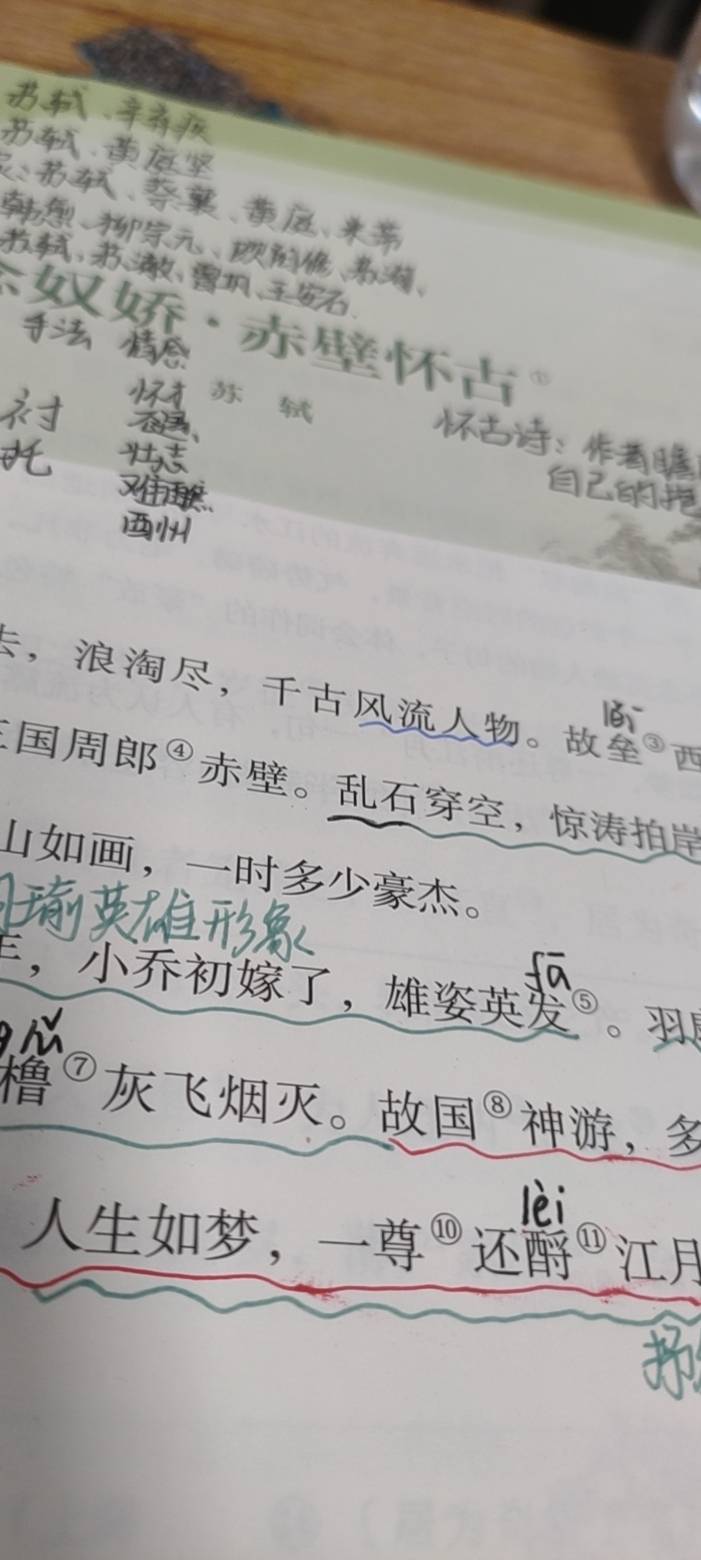 苏轼、辛弃疾
苏轼、黄庭坚
家：苏轼、蔡襄、黄庭、米芾
韩愈、柳宗元、欧阳修、苏洵、
苏轼、苏澈、曾巩、王安石.
念奴娇·赤壁怀古①
手法 情感
苏轼
衬托
怀才不遇、
壮志难酬
怀古诗：作者瞻
自己的抱
去，浪淘尽，千古风流人物。故垒③西
lěi
三国周郎④赤壁。乱石穿空，惊涛拍岸
山如画，一时多少豪杰。
周瑜英雄形象
年，小乔初嫁了，雄姿英发⑤。羽扇
fā
lǔ
橹⑦灰飞烟灭。故国⑧神游，多
lèi
人生如梦，一尊⑩还酹⑪江月
抒